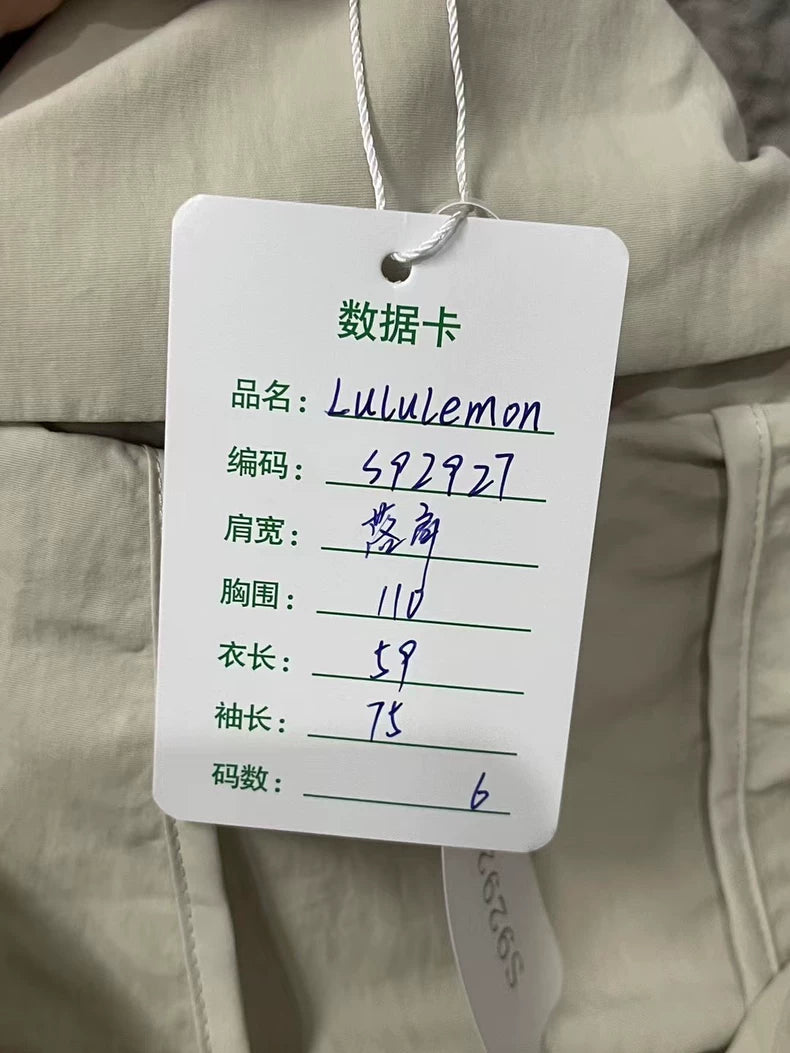 数据卡
品名: LuLuLemon
编码: S92927
肩宽: 落肩
胸围: 110
衣长: 59
袖长: 75
码数: 6
S9292